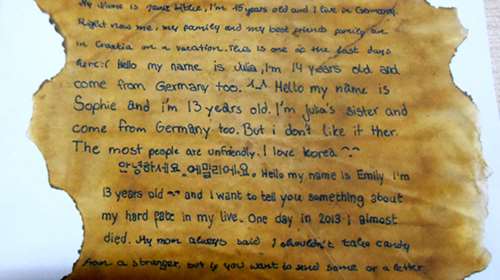 My Name is , I'm 15 years old and I live in Germany.
Right now me, my family and my best friends family are
in Croatia on a vacation. This is one of the last days
here. Hello my name is Julia, I'm 14 years old and
come from Germany too. ^-^ Hello my name is
Sophie and i'm 13 years old. I'm Julia's sister and
come from Germany too. But i don't like it ther.
The most people are unfriendly. I love korea ^^
안녕하세요. 에밀리에요. Hello my name is Emily. I'm
13 years old ^^ and I want to tell you something about
my hard pate in my live. One day in 2013 i almost
died. My mom always said I shouldn't take candy
from a stranger, but if you want to send some or a letter